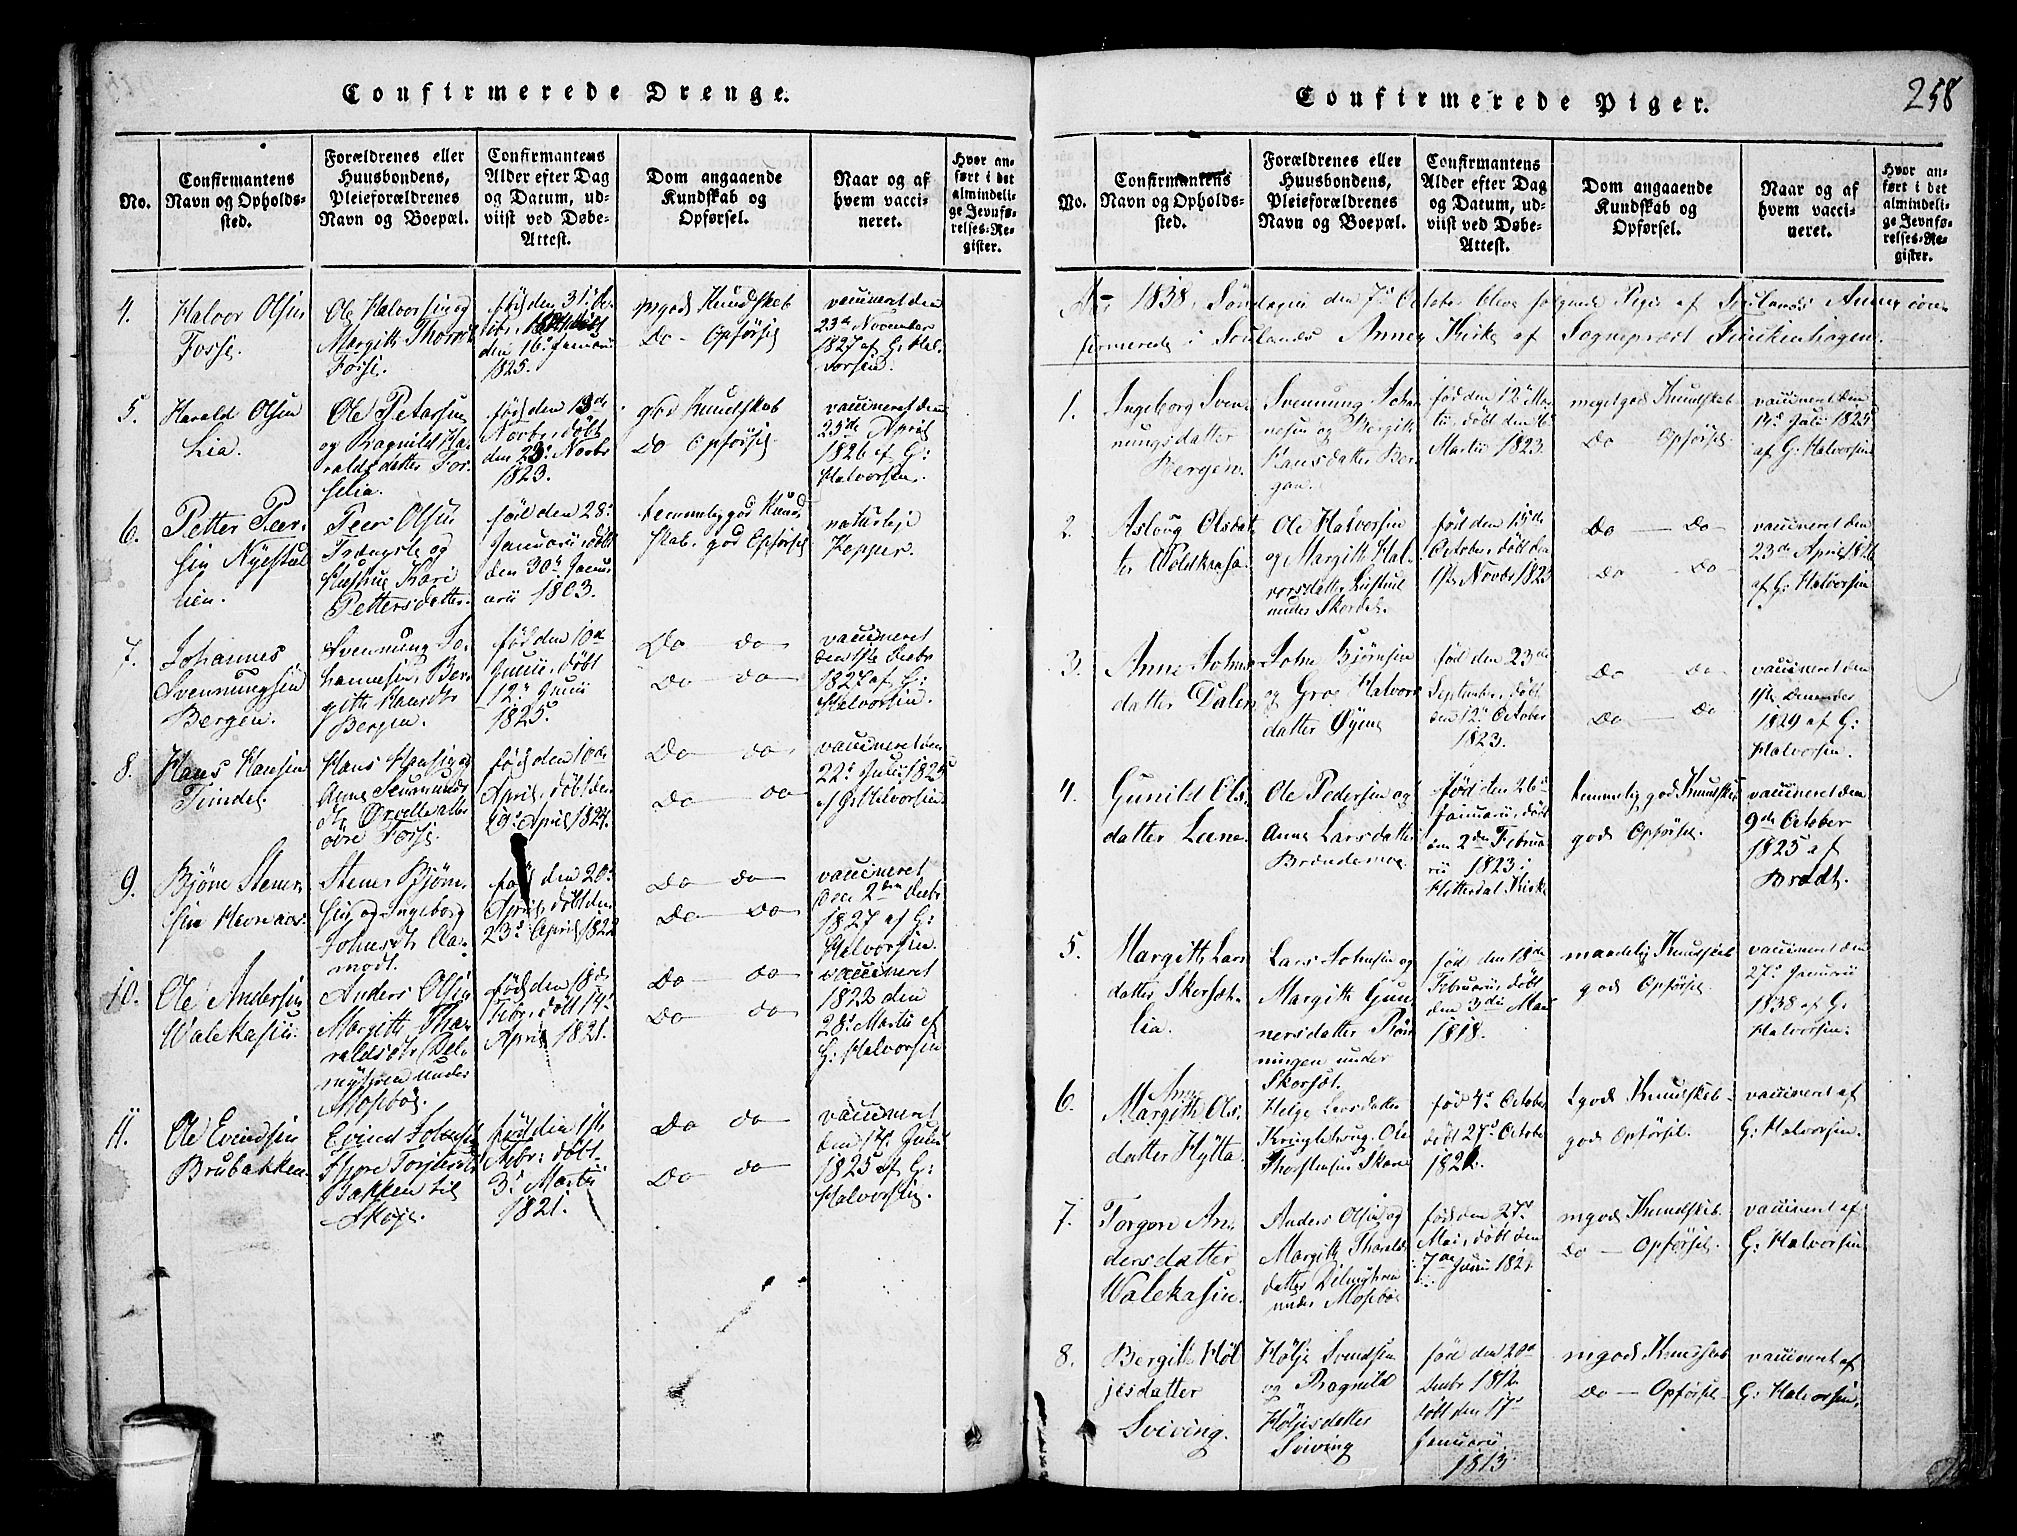 Confirmerede Drenge.
No.
Confirmantens
Navn og Opholds-
sted.
Forældrenes eller
Huusbondens,
Pleieforældrenes
Navn og Boepæl.
Confirmantens
Alder efter Dag
og Datum, ud-
viist ved Døbe-
Attest.
Dom angaaende
Kundskab og
Opførsel.
Naar og af
hvem vacci-
neret.
Hvor an-
ført i det
almindeli-
ge Jevnfø-
relses-Re-
gister.
4.
Halvor Olsen
Fosse.
Ole Halvorsen og
Margith
Fosse.
fød den 31
den 16 Januarii
1825.
mgod Kundskab
Do - Opførsel
vaccineret den
23de November
1827 af G: Hal-
vorsen.
5.
Harald Olsen
Lia.
Ole Petersen
og Ragnild Ha-
raldsdatter
fød den 13de
Novbr, døbt
den 23. Novbr
1823.
god Kundskab
Do Opførsel
vaccineret den
25de April
1826 af G:
Halvorsen.
6.
Petter Peer-
sen
Peer Olsen
og
Kari
Pettersdatter.
fød den 28.
Januarii, døbt
den 30. Janu-
arii 1803.
temmelig god Kund-
skab, god Opførsel
naturlige
Kopper.
7.
Johannes
Svennungsen
Bergen.
Svennung Jo-
hannesen, Ber-
gith
Bergen.
fød den 10de
Junii, døbt
12. Junii
1825.
Do do
Do do
vaccineret
den 1ste Decbr
1827 af G:
Halvorsen.
8.
Hans Hansen
Tindel.
Hans Hansen og
Anne
fød den 10de
April, døbt den
April 1824.
Do do
Do do
vaccineret den
22. Junii 1825
af G: Halvorsen.
9.
Bjørn Stener-
sen
Stener Bjørn-
sen og Ingeborg
Aa-
modt.
fød den 20.
April, døbt den
23. April 1822
Do do
Do Do
vaccineret
den 2den Decbr
1827 af G:
Halvorsen.
10.
Ole Andersen
Walekasin.
Anders Olsen
Margith Tha-
under
Mosebøe.
fød den 18de
Febr, døbt 14.
April 1821.
Do do
Do do
vaccineret
1822 den
28. Martii af
G: Halvorsen
11.
Ole Evindsen
Brubakken.
Evind
Bakken til
fød den 1ste
døbt
3. Martii
1821.
Do do
Do do
vaccineret
den 17. Junii
1825 af G:
Halvorsen.
Confirmerede Piger.
258
No.
Confirmantens
Navn og Opholds-
sted.
Forældrenes eller
Huusbondens,
Pleieforældrenes
Navn og Boepæl.
Confirmantens
Alder efter Dag
og Datum, ud-
viist ved Døbe-
Attest.
Dom angaaende
Kundskab og
Opførsel.
Naar og af
hvem vacci-
neret.
Hvor an-
ført i det
almindeli-
ge Jevnfø-
relses-Re-
gister.
Aar 1838, Søndagen den 7. October bleve følgende Piger af Soulands Annex con-
firmerede i Soulands Annex Kirke af Sognepræst Finckenhagen.
1.
Ingeborg Sven-
nungsdatter
Bergen.
Svennung Johan-
nesen og Bergith
Hansdatter Ber-
gen.
fød den 12 Mar-
tii, døbt den 16
Martii 1823.
meget god Kundskab
Do Opførsel
vaccineret den
14. Juli 1825
af G: Halvorsen
2.
Asloug Olsdat-
ter Woldkasa.
Ole Halvorsen
og Margith Hal-
vorsdatter
under
fød den 15de
October, døbt den
1ste Novbr 1823
Do - Do
Do - Do
vaccineret den
23de April 1826
af G: Halvorsen
3.
Anne Johns-
datter Dalen
John Bjørnsen
og Gro Halvors-
datter Øyne
fød den 23de
September, døbt
den 12. October
1823.
Do - Do
Do - Do
vaccineret den
1ste December
1829 af G:
Halvorsen.
4.
Gunild Ols-
datter Lune
Ole Pedersen og
Anne Larsdatter
Brændemoe.
fød den 26de
Januarii, døbt
den 2den Februa-
rii 1823 i
Hitterdal Kirke
temmelig god Kundskab
god Opførsel.
vaccineret den
9de October
1825 af
Bradt.
5.
Margith Lars-
datter Skorset-
lia.
Lars Johnsen og
Margith Gun-
nersdatter Røn-
ningen under
Skorset.
fød den 18de
Februarii, døbt
den 3die
1818.
maadelig Kundskab
god Opførsel.
vaccineret den
27. Januarii
1838 af G:
Halvorsen.
6.
Anne
Margith Ols-
datter Hytta.
Helge Larsdatter
Ole
Thorstensen
fød 4. October
døbt 27. October
1822.
god Kundskab
god Opførsel.
vaccineret af
G: Halvorsen.
7.
Torgon An-
dersdatter
Walekasin.
Anders Olsen og
Margith Tharalds-
datter
under Mosebøe
fød den 27.
Mai, døbt den
7de Junii 182
mgod Kundskab
Do - Opførsel.
vaccineret af
G: Halvorsen
8.
Bergith Høl-
jesdatter
Sviving.
Hølje Svendsen
og Ragnild
Høljesdatter
Sviving
fød den 20de
Decbr 1812
døbt den 17.
Januarii
1813
mgod Kundskab
Do - Opførsel.
vaccineret af
G: Halvorsen.